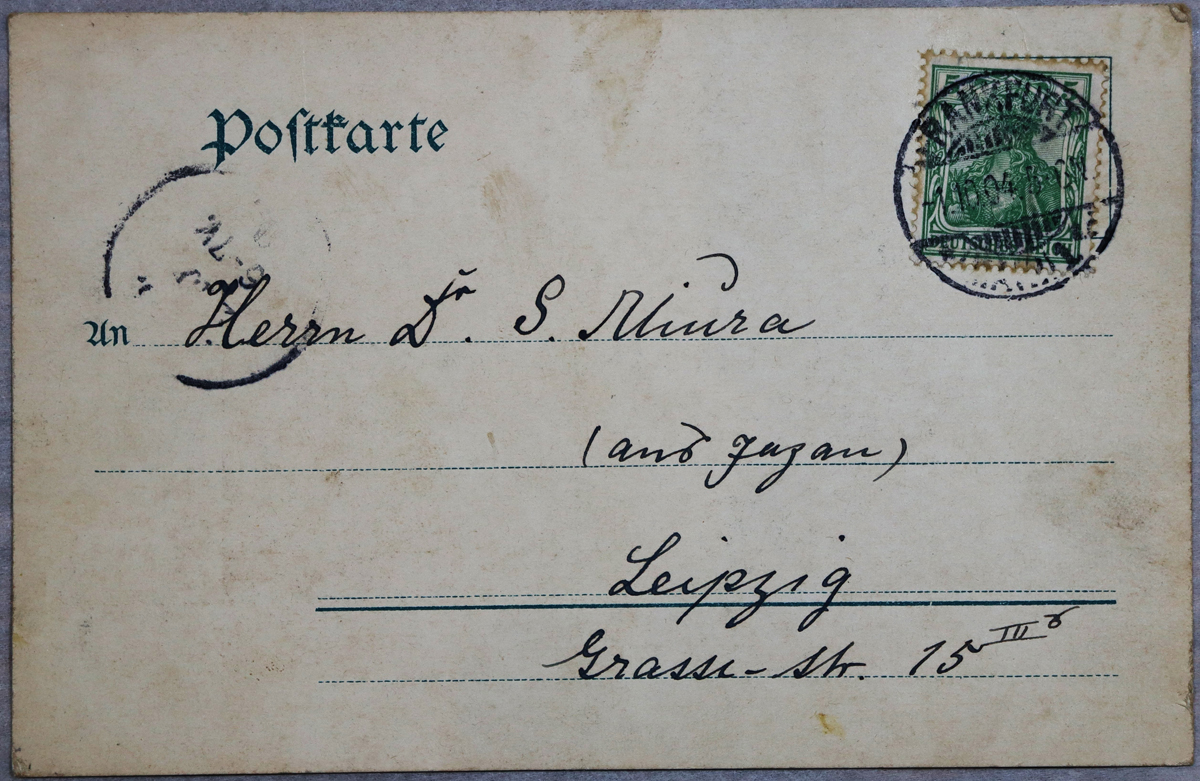 Postkarte
FRANKFURT
5
10.04
An Herrn Dr. S. Miura
(aus Japan)
Leipzig
Grassi-str. 15 III r